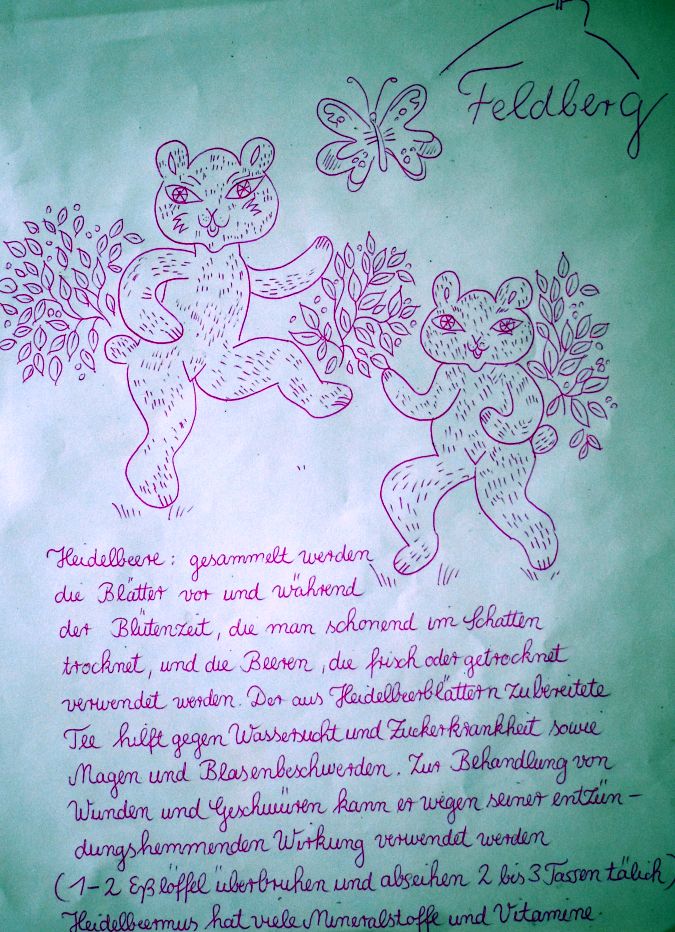 Feldberg
Heidelbeere: gesammelt werden
die Blätter vor und während
der Blütenzeit, die man schonend im Schatten
trocknet, und die Beeren, die frisch oder getrocknet
verwendet werden. Der aus Heidelbeerblättern zubereitete
Tee hilft gegen Wassersucht und Zuckerkrankheit sowie
Magen und Blasenbeschwerden. Zur Behandlung von
Wunden und Geschwüren kann er wegen seiner entzün-
dungshemmenden Wirkung verwendet werden
(1-2 Eßlöffel überbruhen und abseihen 2 bis 3 Tassen tälich)
Heidelbeermus hat viele Mineralstoffe und Vitamine.